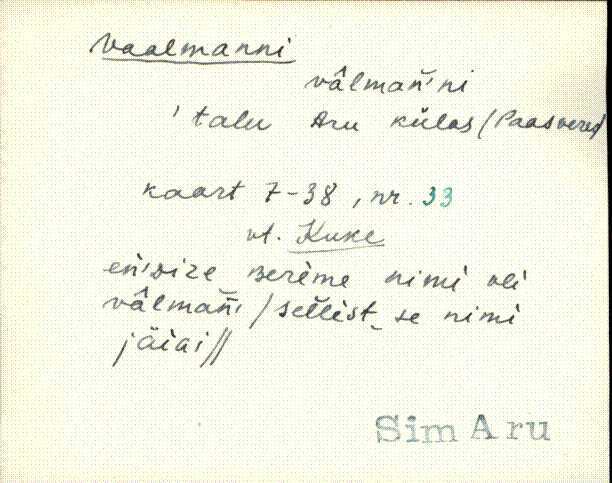 Vaalmanni
vâlmañ'ni
' talu Aru külas (Paasvere)
kaart 7-38, nr. 33
vt. Kuke
eñ'dize nerème nimi oli
vâlmañ' / sellist se nimi
jäiai //
Sim Aru